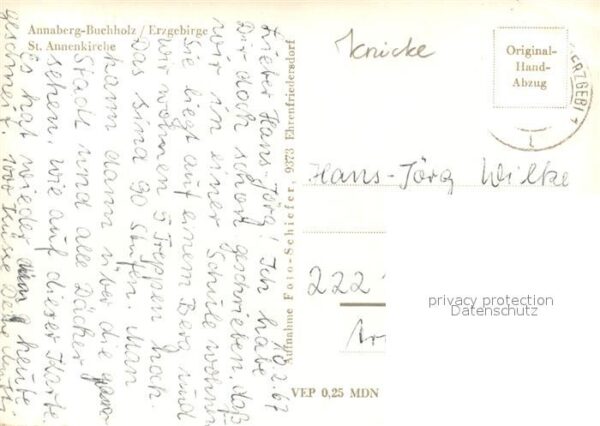 Annaberg-Buchholz / Erzgebirge
St. Annenkirche
10.2.67
Lieber Hans-Jörg! Ich habe
Dir doch schon geschrieben, daß
wir in einer Schule wohnen
Sie liegt auf einem Berg und
wir wohnen 5 Treppen hoch.
Das sind 90 Stufen. Man
kann dann über die ganze
Stadt und alle Dächer
sehen, wie auf dieser Karte.
Es hat wieder heute
geschneit. 100 Küsse Deine Mutti
Aufnahme Foto-Schiefer, 9373 Ehrenfriedersdorf
VEP 0,25 MDN
knicke
Original-
Hand-
Abzug
ERZGEB 1
Hans-Jörg Wilke
222
Ar
privacy protection
Datenschutz